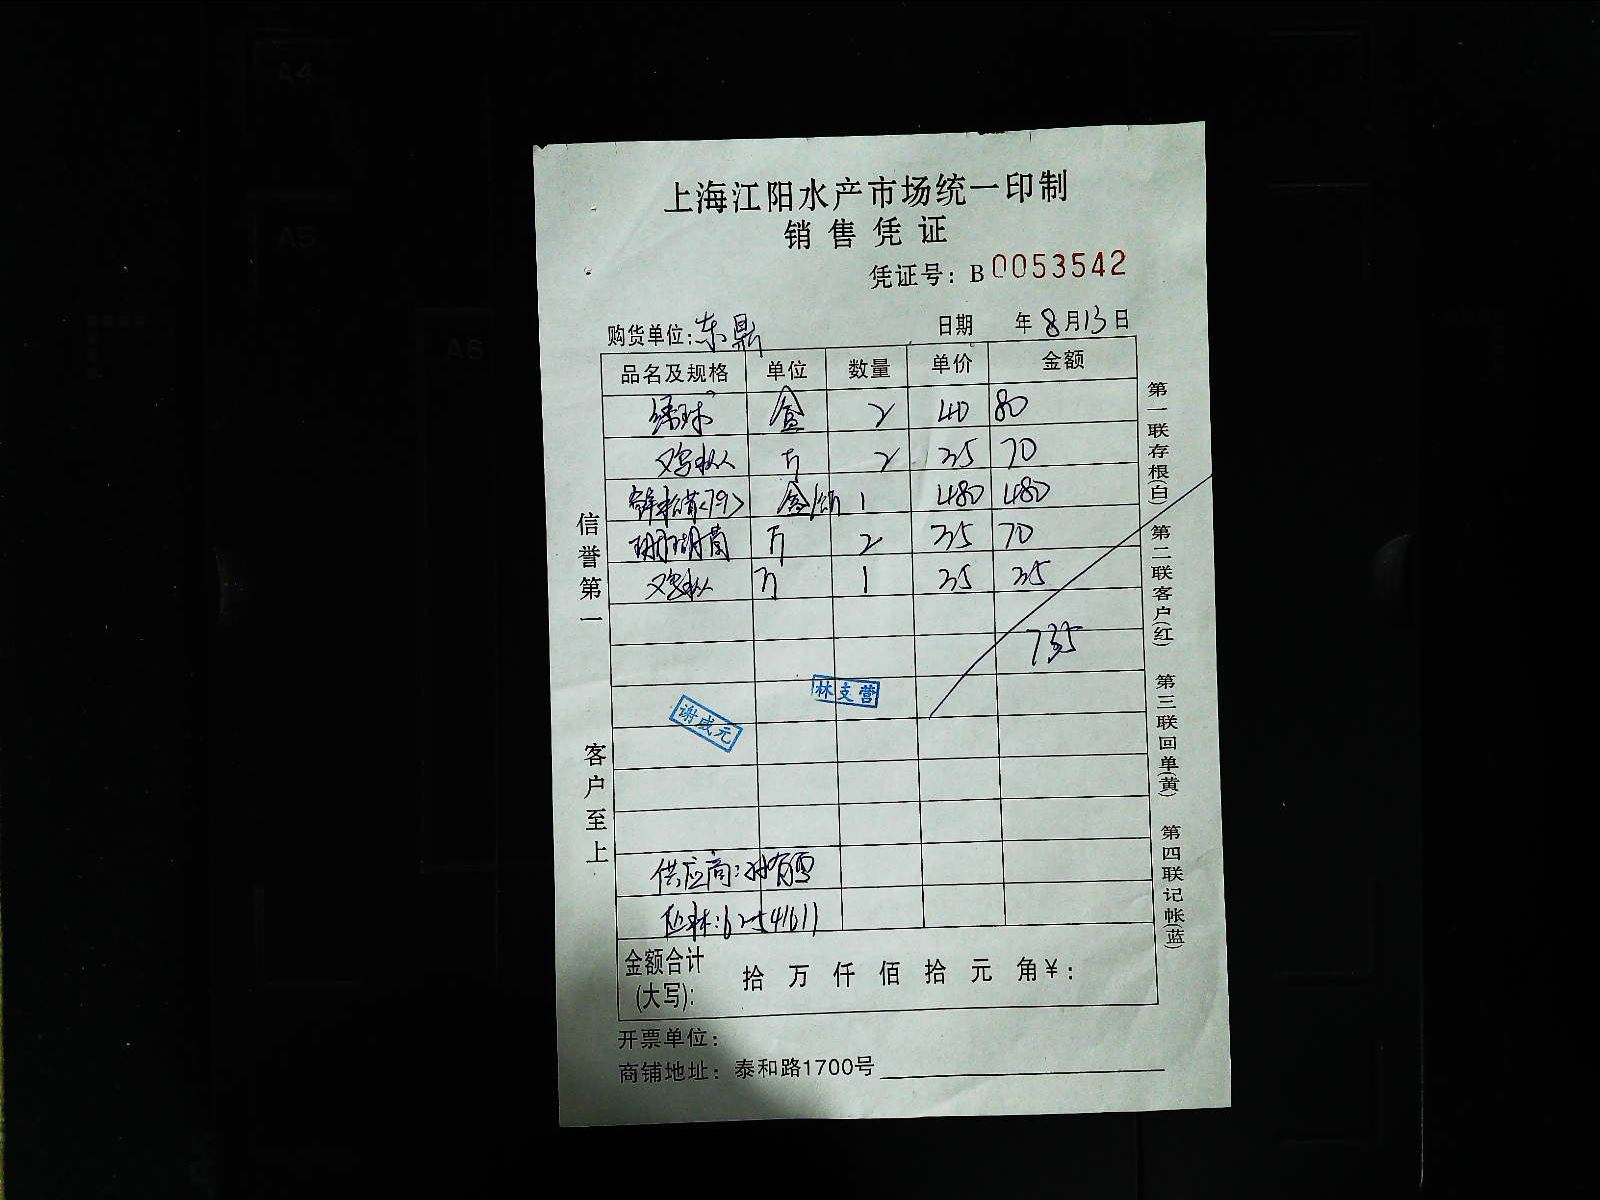 上海江阳水产市场统一印制
销售凭证
凭证号：B 0053542
购货单位：东鼎 日期 年 8月13日
品名及规格 单位 数量 单价 金额
绣球 盒 2 40 80
鸡枞 斤 2 35 70
鲜松茸<79> 盒 1 480 480
珊瑚菌 斤 2 35 70
鸡枞 斤 1 35 35
735
林支营
谢成元
供应商：孙有雪
62541611
金额合计
(大写)： 拾 万 仟 佰 拾 元 角 ¥：
开票单位：
商铺地址：泰和路1700号
信誉第一
客户至上
第一联存根(白) 第二联客户(红) 第三联回单(黄) 第四联记帐(蓝)
A4
A5
A6